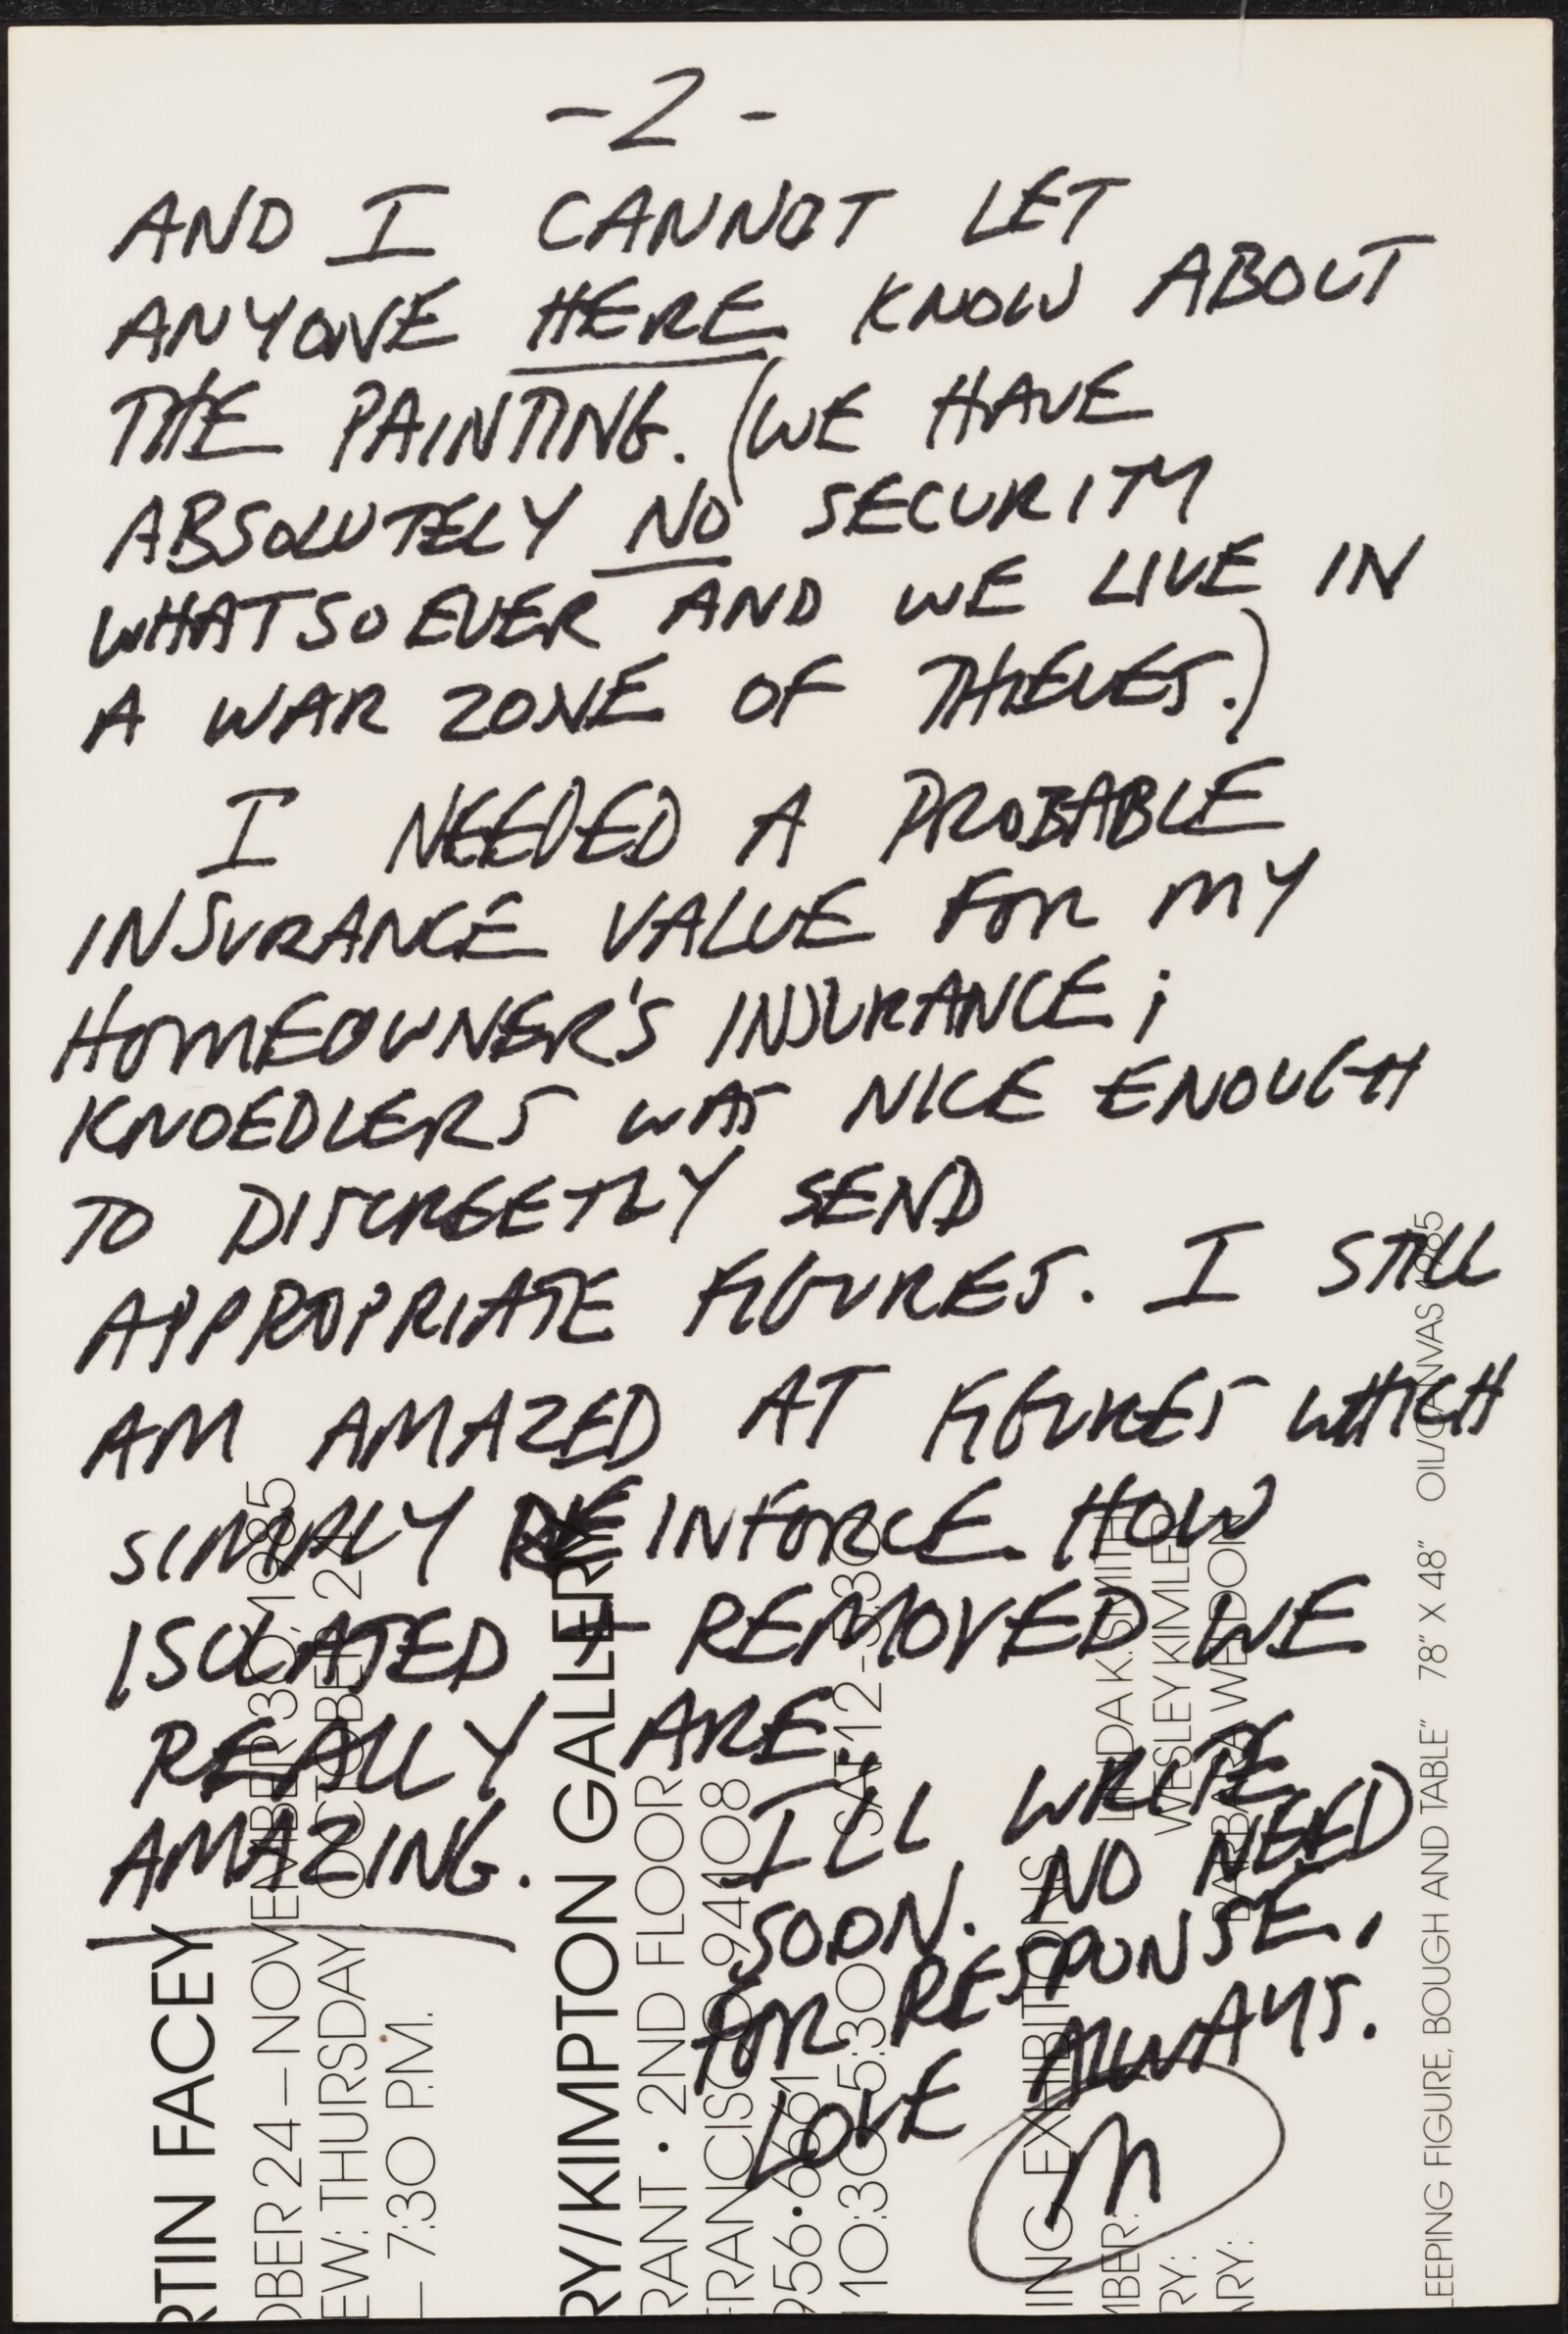 -2-
AND I CANNOT LET
ANYONE HERE KNOW ABOUT
THE PAINTING. (WE HAVE
ABSOLUTELY NO SECURITY
WHATSOEVER AND WE LIVE IN
A WAR ZONE OF THIEVES.)
I NEEDED A PROBABLE
INSURANCE VALUE FOR MY
HOMEOWNER'S INSURANCE;
KNOEDLERS WAS NICE ENOUGH
TO DISCREETLY SEND
APPROPRIATE FIGURES. I STILL
AM AMAZED AT FIGURES WHICH
SIMPLY REINFORCE HOW
ISOLATED + REMOVED WE
REALLY ARE.
AMAZING.
I'LL WRITE
SOON. NO NEED
FOR RESPONSE,
LOVE ALWAYS.
M
RTIN FACEY
OBER 24 – NOVEMBER 30, 1985
EW: THURSDAY, OCTOBER 24
– 7:30 P.M.
RY/KIMPTON GALLERY
RANT • 2ND FLOOR
FRANCISCO 94108
956•6661
10:30-5:30 SAT 12-5:30
ING EXHIBITIONS
MBER: LINDA K. SMITH
RY: WESLEY KIMLER
ARY: BARBARA WELDON
LEEPING FIGURE, BOUGH AND TABLE" 78" X 48" OIL/CANVAS 1985